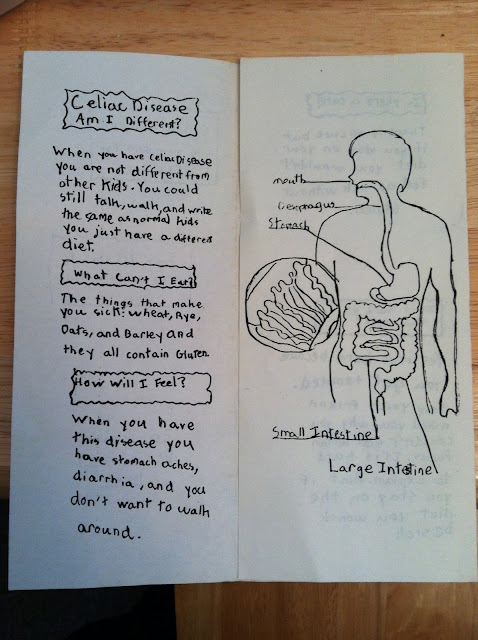 Celiac Disease
Am I Different?
When you have Celiac Disease
you are not different from
other kids. You could
still talk, walk, and write
the same as normal kids
you just have a different
diet.
What Can't I Eat?
The things that make
you sick: wheat, Rye,
Oats, and Barley and
they all contain Gluten.
How Will I Feel?
When you have
this disease you
have stomach aches,
diarrhia, and you
don't want to walk
around.
mouth
Stomach
Small Intestine
Large Intestine